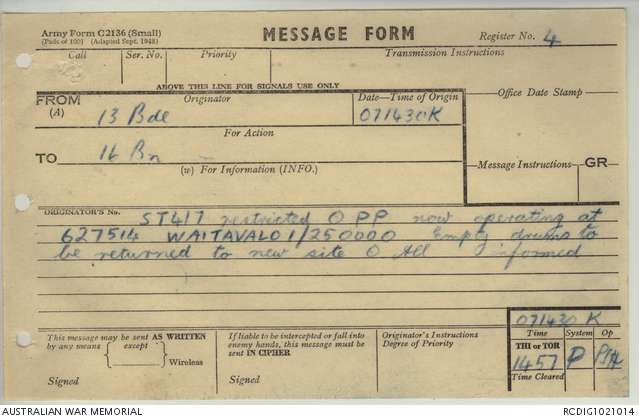 Army Form C2136 (Small)
(Pads of 100) (Adapted Sept. 1943)
MESSAGE FORM
Register No. 4
Call Ser. No. Priority Transmission Instructions
ABOVE THIS LINE FOR SIGNALS USE ONLY
FROM Originator Date—Time of Origin Office Date Stamp
(A) 13 Bde 071430K
For Action
TO 16 Bn
(w) For Information (INFO.) Message Instructions GR
ORIGINATOR'S No. ST417 restricted O PP now operating at
627514 WAITAVALO 1/250000 Empty drums to
be returned to new site O All informed
071430 K
This message may be sent AS WRITTEN
by any means except
Wireless
Signed
If liable to be intercepted or fall into
enemy hands, this message must be
sent IN CIPHER
Signed
Originator's Instructions
Degree of Priority
Time System Op
THI or TOR
1457
Time Cleared
AUSTRALIAN WAR MEMORIAL RCDIG1021014